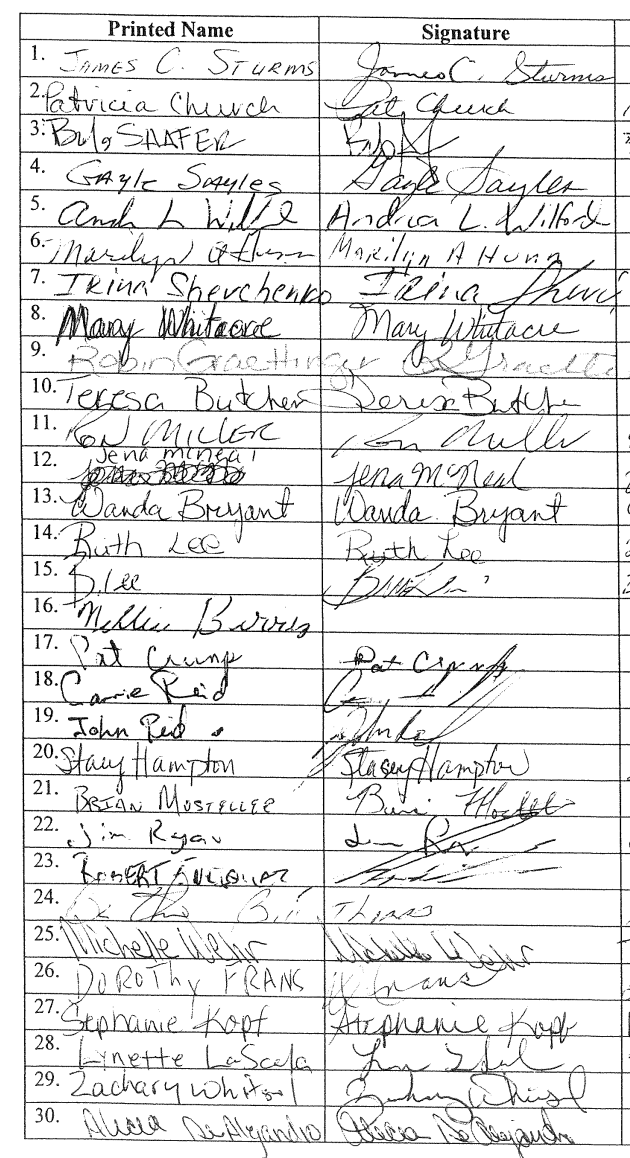 Printed Name Signature
1. JAMES C. STURMS James C. Sturms
2. Patricia Church Pat Church
3. SHAFER
4. GAYLE Sayles Gayle Sayles
5. L Andrea L. Wilford
6. Marilyn MARiLyn A HUNN
7. IRina Shevchenko IRina
8. Mary Whitacre Mary Whitacre
9. Robin Graettinger
10. Teresa Butcher Teresa Butcher
11. RON MILLER Ron Miller
12. Jena McNeal Jena McNeal
13. Wanda Bryant Wanda Bryant
14. Ruth Lee Ruth Lee
15. B. Lee
16. Burris
17. Pat Crump Pat Crump
18. Carrie Reid
19. John Reid
20. Stacy Hampton Stacey Hampton
21. BRIAN MOSTELLER
22. Jim Ryan Jim
23. ROBERT
24.
25. Michelle Wehr Michelle Wehr
26. DOROTHy FRANS D Frans
27. Stephanie Kopf Stephanie Kopf
28. Lynette LaScala
29. Zachary
30. Alicia DeAlejandro Alicia De Alejandro